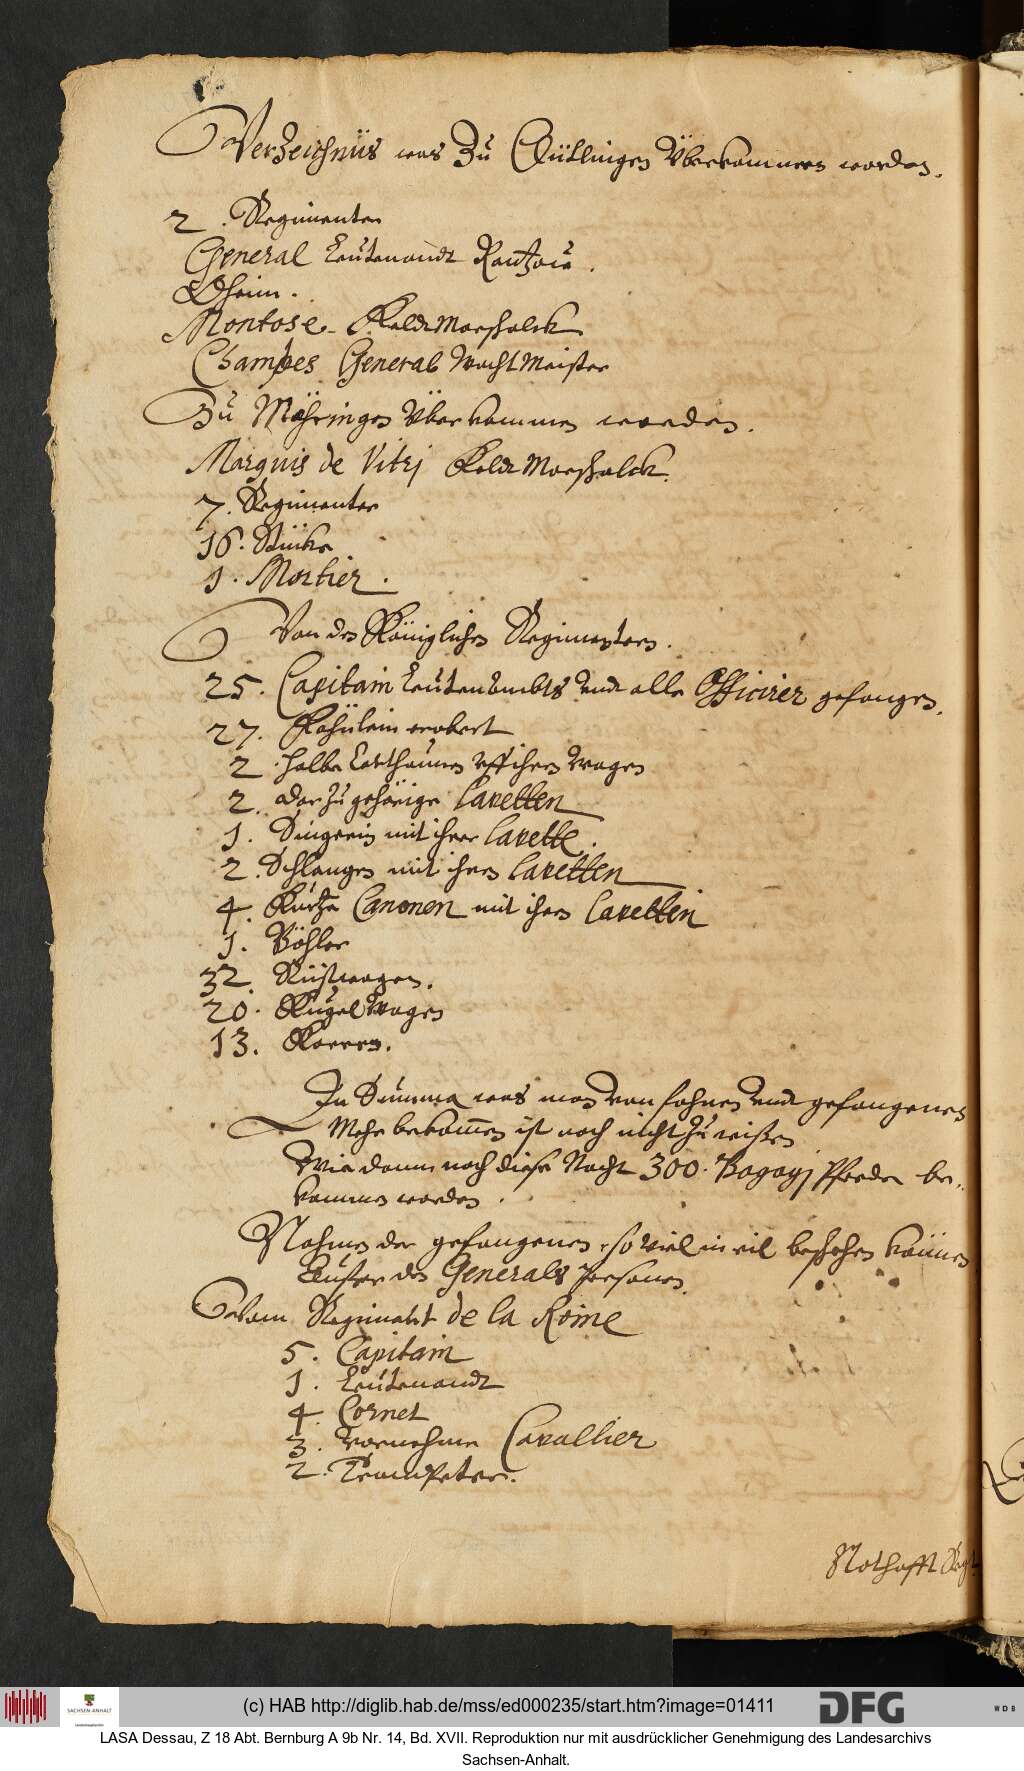 Verzeichnüs was Zu Dütlingen Überkommen worden.
2. Regimenter
General Leütenandt Rantzow.
Oheim.
Montose. FeldtMarschalck
Chambes General WachtMeister
Zu Möhringen Überkommen worden.
Marquis de Vitrj FeldtMarschalck.
7. Regimenter
16. Stücke
1. Mortier.
Von den Königlichen Regimentern.
25. Capitain Leutenambts Undt alle Officirer gefangen.
27. Fähnlein erobert
2. halbe Carthaunen Uff ihren Wagen
2. darzu gehörige Lavetten
1. Singerin mit ihrer Lavette.
2. Schlangen mit ihren Lavetten
4. Kurtze Canonen mit ihren Lavetten
1. Böhler
32. Rüstwagen.
20. KugelWagen
13. Karren.
In Summa was man von fahnen Undt gefangenen
Mehr bekommen ist noch nicht zu wißen
Wie dann noch diese Nacht 300. Bagagj Pferde be-
kommen worden.
Nahmen der gefangenen so viel in eil beschehen können
Außer den Generals Personen.
Vom Regiment de la Roine
5. Capitain
1. Leütenandt
4. Cornet
3. vornehme Cavallier
2. Trompeter.
Nothafft Regt.
SACHSEN-ANHALT
(c) HAB http://diglib.hab.de/mss/ed000235/start.htm?image=01411
DFG
WDB
LASA Dessau, Z 18 Abt. Bernburg A 9b Nr. 14, Bd. XVII. Reproduktion nur mit ausdrücklicher Genehmigung des Landesarchivs
Sachsen-Anhalt.